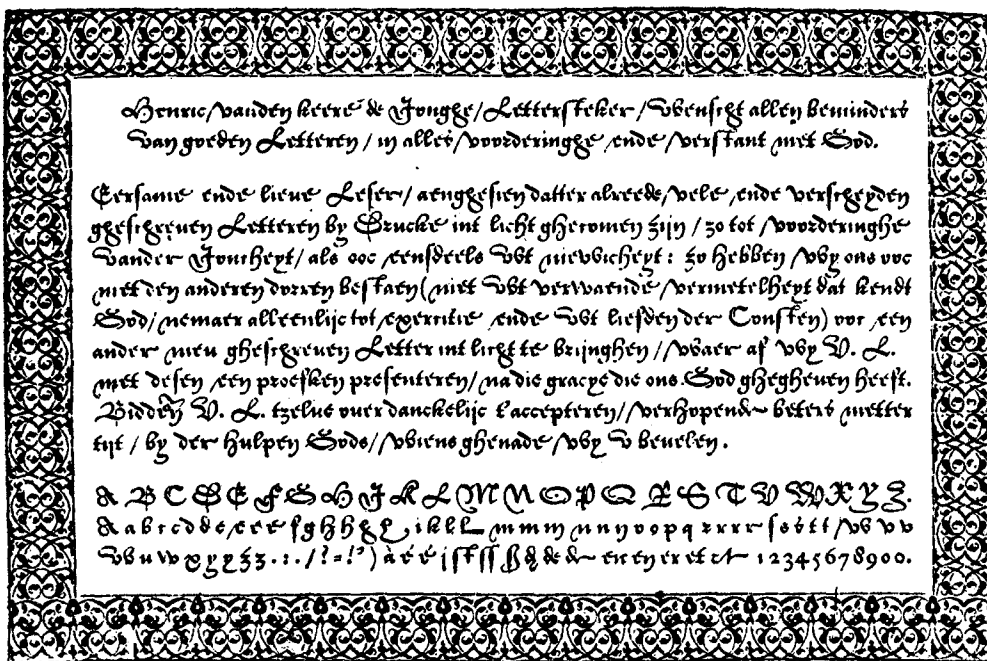 Henric/vanden keere de Jonghe/Lettersteker/Wenscht allen beminders
van goeden Letteren/in alles voorderinghe ende verstant met God.
Eersame ende lieve Leser/aenghesien datter alreede vele ende verscheyden
gheschreven Letteren by Drucke int licht ghecomen zijn/zo tot voorderinghe
vander Joncheyt/als ooc eensdeels Wt nieuwicheyt: zo hebben wy ons ooc
met den anderen dorren bestaen (niet Wt verwaende vermetelheyt dat kendt
God/nemaer alleenlijc tot exercitie ende Wt liefden der Consten) ooc een
ander nieu gheschreven Letter int licht te brijnghen/waer af wy V. L.
met desen een proefken presenteren/na die gracye die ons God ghegheven heeft.
Bidden V. L. tzelve over danckelijc t'accepteren/verhopende beters metter
tijt/by der hulpen Gods/wiens ghenade wy V bevelen.
A B C D E F G H J K L M N O P Q R S T V W X Y Z.
a a b c d d e e e e f g h h g g i k l L m m m n n n y o o p q r r r r s s t t v v v v
w u w x y y z z z . : . / ? = ! ' ) à é è i st ss de de en en er et ct 1 2 3 4 5 6 7 8 9 0 0.